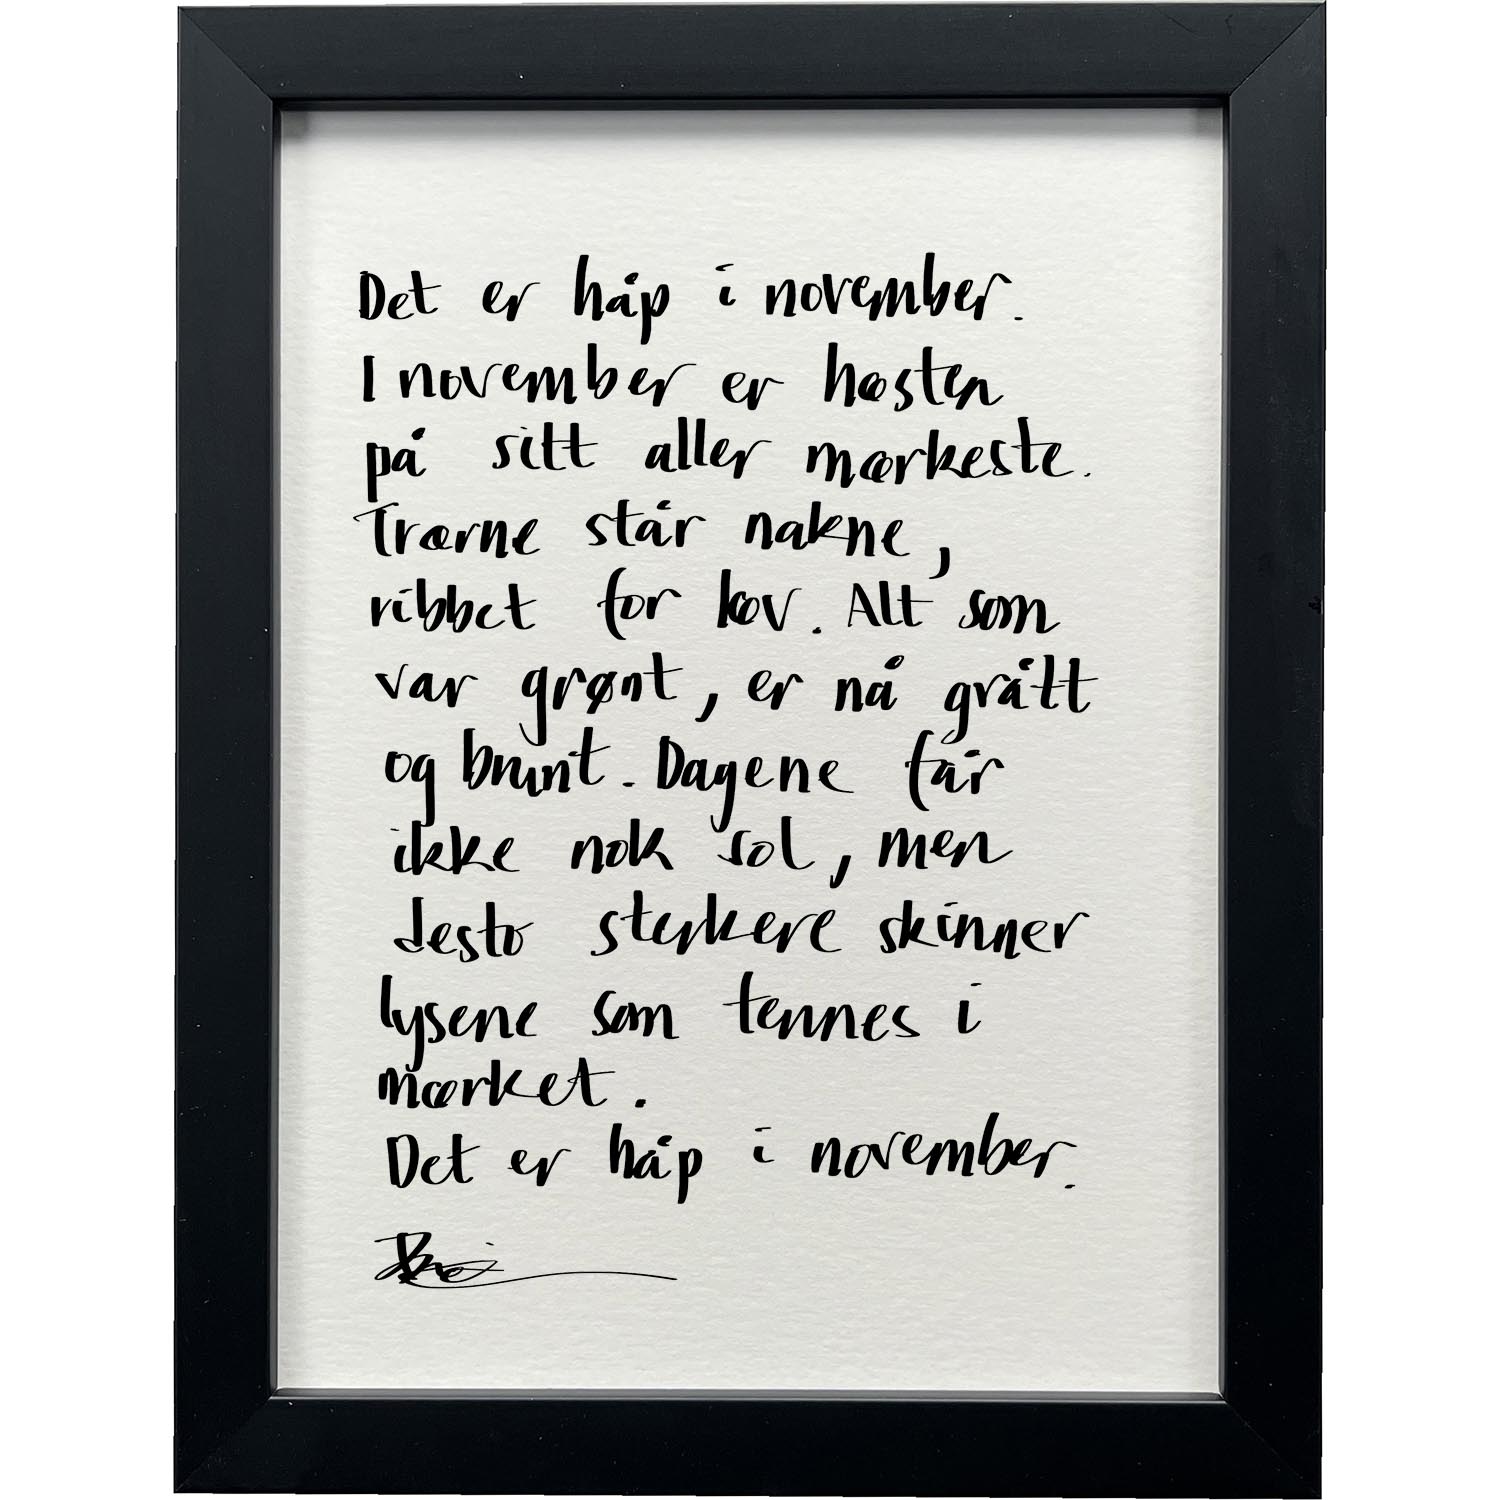 Det er håp i november.
I november er høsten
på sitt aller mørkeste.
Trærne står nakne,
ribbet for løv. Alt som
var grønt, er nå grått
og brunt. Dagene får
ikke nok sol, men
desto sterkere skinner
lysene som tennes i
mørket.
Det er håp i november.